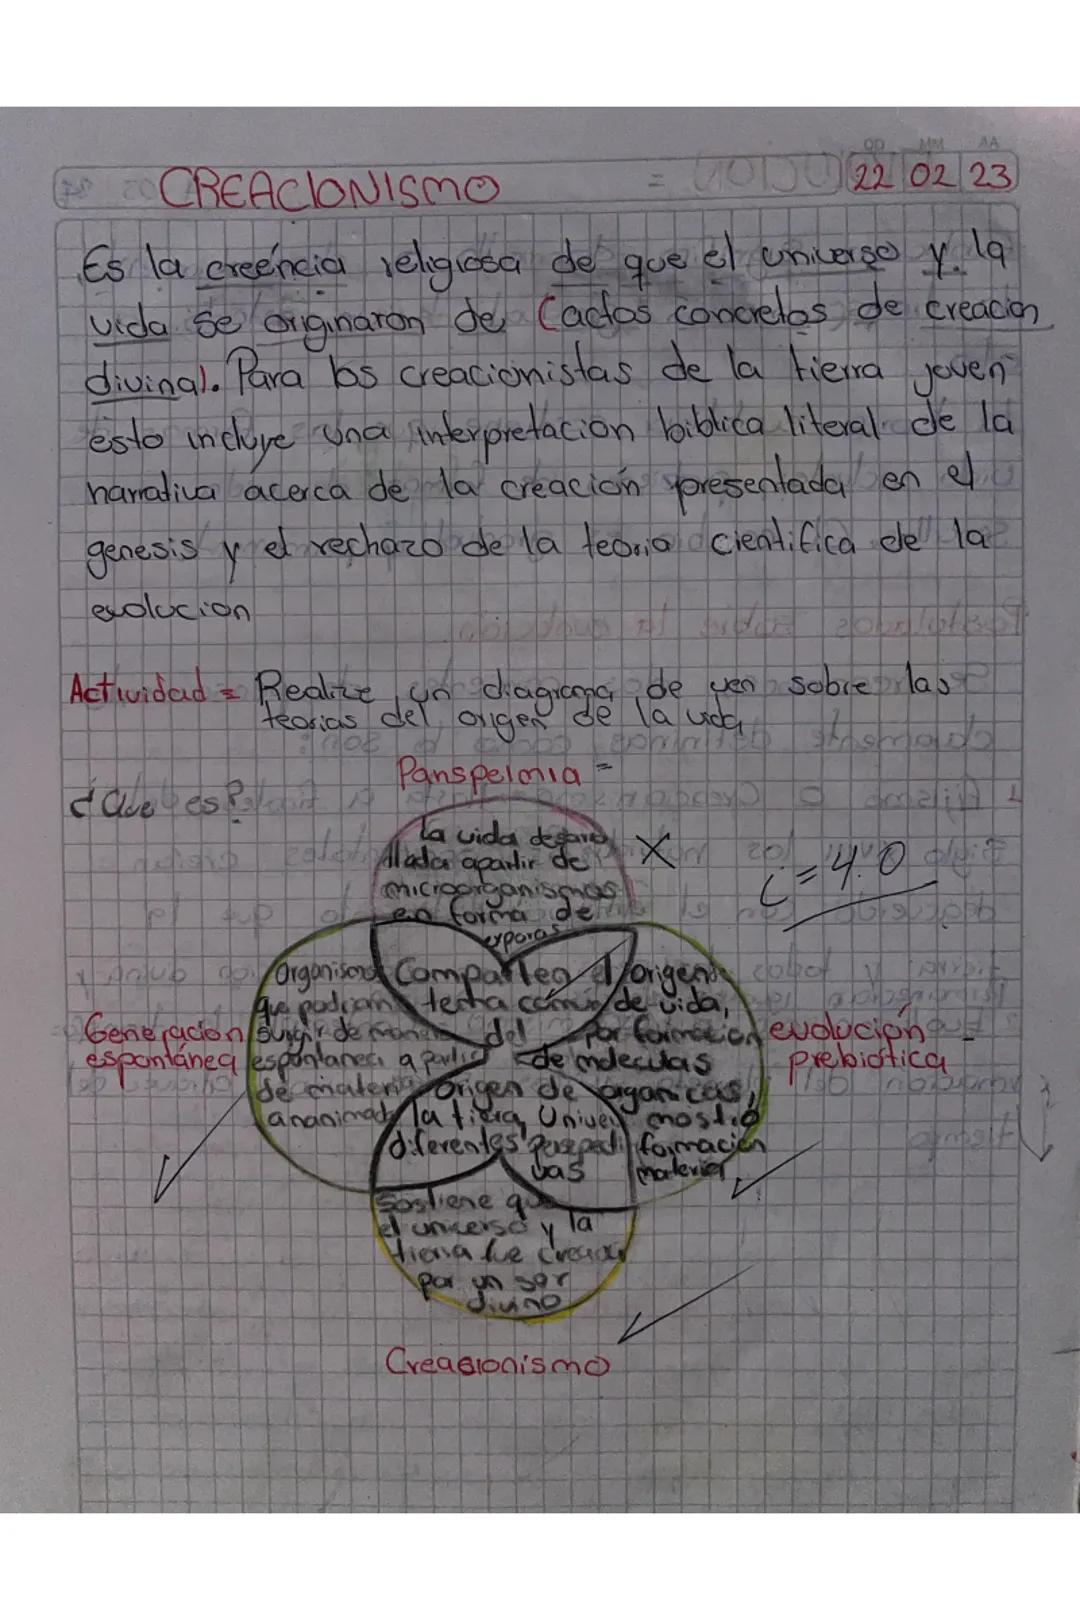 DD MM AA
CREACIONISMO = 22 02 23
Es la creéncia religiosa de que el universo y la
vida se originaron de (actos concretos de creacion
divina). Para los creacionistas de la tierra joven
esto incluye una interpretacion biblica literal de la
narrativa acerca de la creación presentada en el
genesis y el rechazo de la teoria cientifica de la
evolucion
Actividad = Realize un diagrama de ven sobre las
teorias del origen de la vida
Panspelmia =
¿Que es?
La vida desarro
llada apartir de
microorganismos
en forma de
exporas
X
C=4.0
Generacion
espontánea
Organismos
que podrian
surgir de mane
espontanea a partir
de materia
ananimada
Comparten el
tema comun
del
origen de
la tierra, Univer
diferentes perspecti
vas
origen
de vida,
por formacion
de moleculas
organicas,
mostro
formación
materia
evolución -
prebiotica
Sostiene que
el universo y la
tierra fue creada
por un ser
divino
Creasionismo